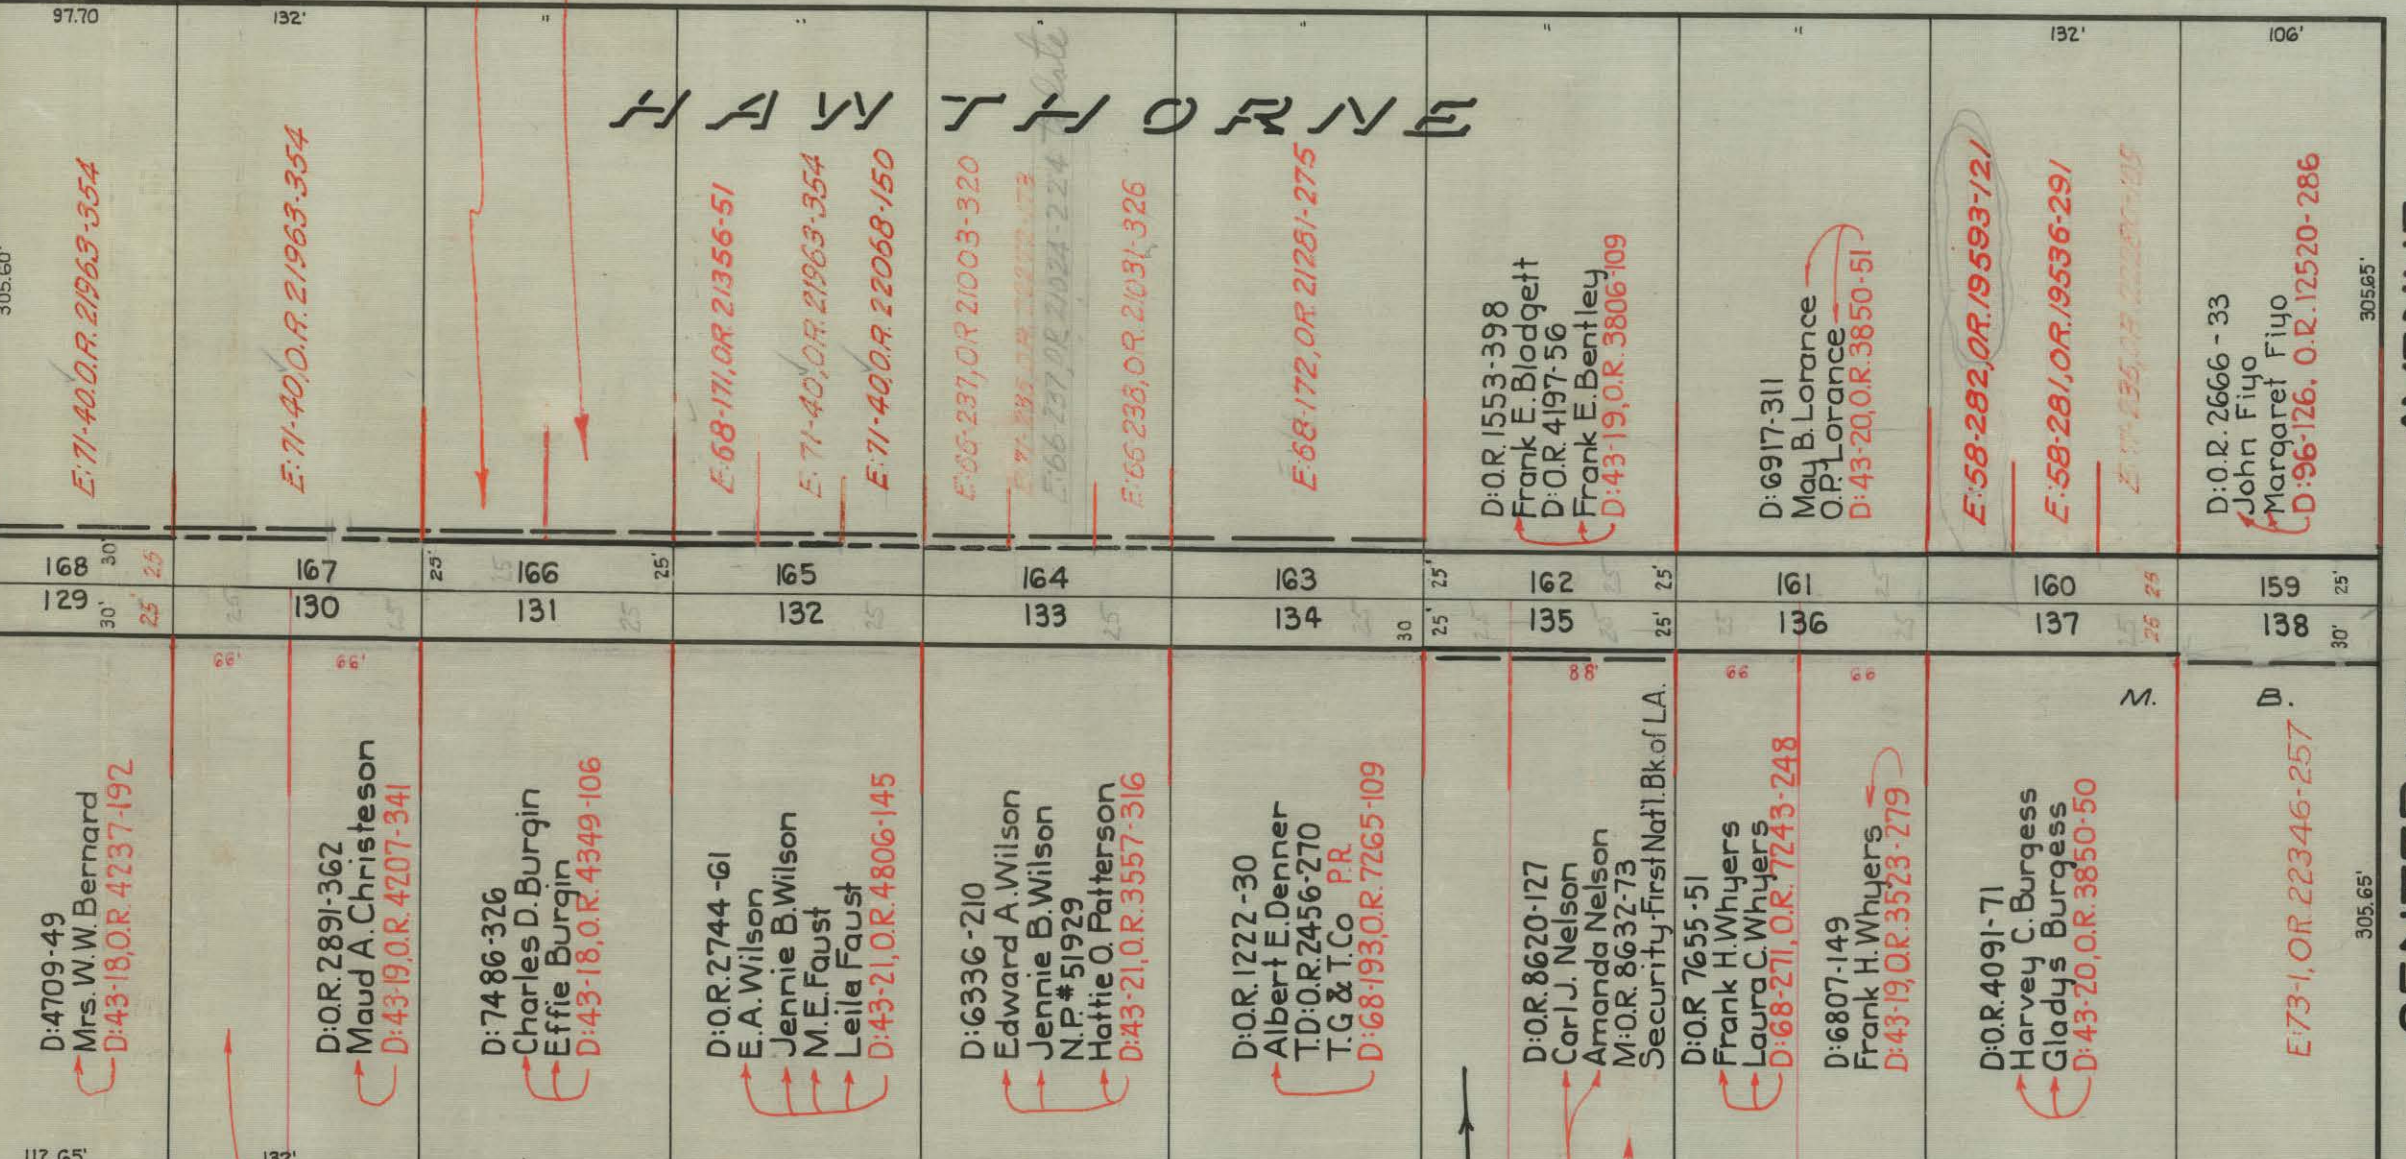 97.70
132'
"
"
"
"
"
"
132'
106'
HAWTHORNE
305.60'
E:71-40,O.R.21963-354
E:71-40,O.R.21963-354
E:68-171,O.R.21356-51
E:71-40,O.R.21963-354
E:71-40,O.R.22068-150
E:66-237,O.R.21003-320
E:66-237,O.R.21024-224
E:66-238,O.R.21031-326
E:68-172,O.R.21281-275
D:O.R.1553-398
Frank E.Blodgett
D:O.R.4197-56
Frank E.Bentley
D:43-19,O.R.3806-109
D:6917-311
May B.Lorance
O.P.Lorance
D:43-20,O.R.3850-51
E:58-282,O.R.19593-121
E:58-281,O.R.19536-291
D:O.R.2666-33
John Fiyo
Margaret Fiyo
D:96-126, O.R.12520-286
305.65'
168 30' 25
167
25' 166 25'
165
164
163
25' 162 25'
161
160 25
159 25'
129 30' 25'
130
131
132
133
134 30
25' 135 25'
136
137 25
138 30'
66'
66'
88'
66
66
M. B.
D:4709-49
Mrs.W.W.Bernard
D:43-18,O.R.4237-192
D:O.R.2891-362
Maud A.Christeson
D:43-19,O.R.4207-341
D:7486-326
Charles D.Burgin
Effie Burgin
D:43-18,O.R.4349-106
D:O.R.2744-61
E.A.Wilson
Jennie B.Wilson
M.E.Faust
Leila Faust
D:43-21,O.R.4806-145
D:6336-210
Edward A.Wilson
Jennie B.Wilson
N.P.#51929
Hattie O.Patterson
D:43-21,O.R.3557-316
D:O.R.1222-30
Albert E.Denner
T.D:O.R.2456-270
T.G & T.Co P.R.
D:68-193,O.R.7265-109
D:O.R.8620-127
Carl J. Nelson
Amanda Nelson
M:O.R.8632-73
Security-First Nat'l.Bk.of LA.
D:O.R 7655-51
Frank H.Whyers
Laura C.Whyers
D:68-271,O.R.7243-248
D:6807-149
Frank H.Whyers
D:43-19,O.R.3523-279
D:O.R.4091-71
Harvey C.Burgess
Gladys Burgess
D:43-20,O.R.3850-50
E:73-1,O.R.22346-257
305.65'
117.65'
132'